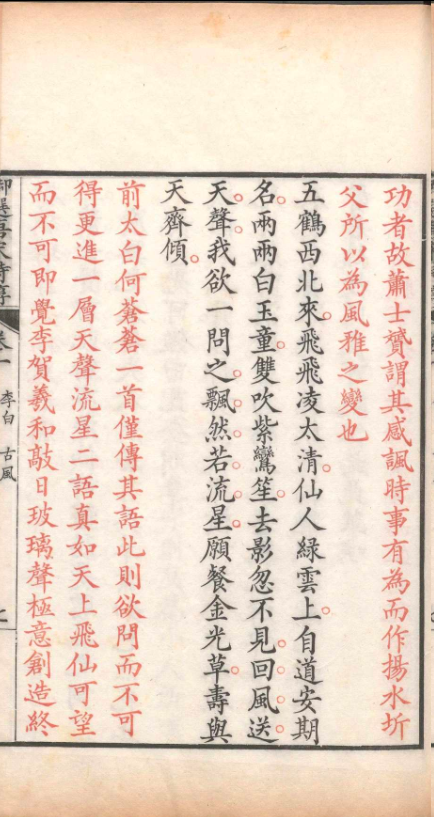 功者故蕭士贇謂其感諷時事有為而作揚水圻
父所以為風雅之變也
五鶴西北來飛飛凌太清仙人綠雲上自道安期
名兩兩白玉童雙吹紫鸞笙去影忽不見回風送
天聲我欲一問之飄然若流星願餐金光草壽與
天齊傾
前太白何蒼蒼一首僅傳其語此則欲問而不可
得更進一層天聲流星二語真如天上飛仙可望
而不可即覺李賀羲和敲日玻璃聲極意創造終
御選唐宋詩醇 卷一 李白 古風